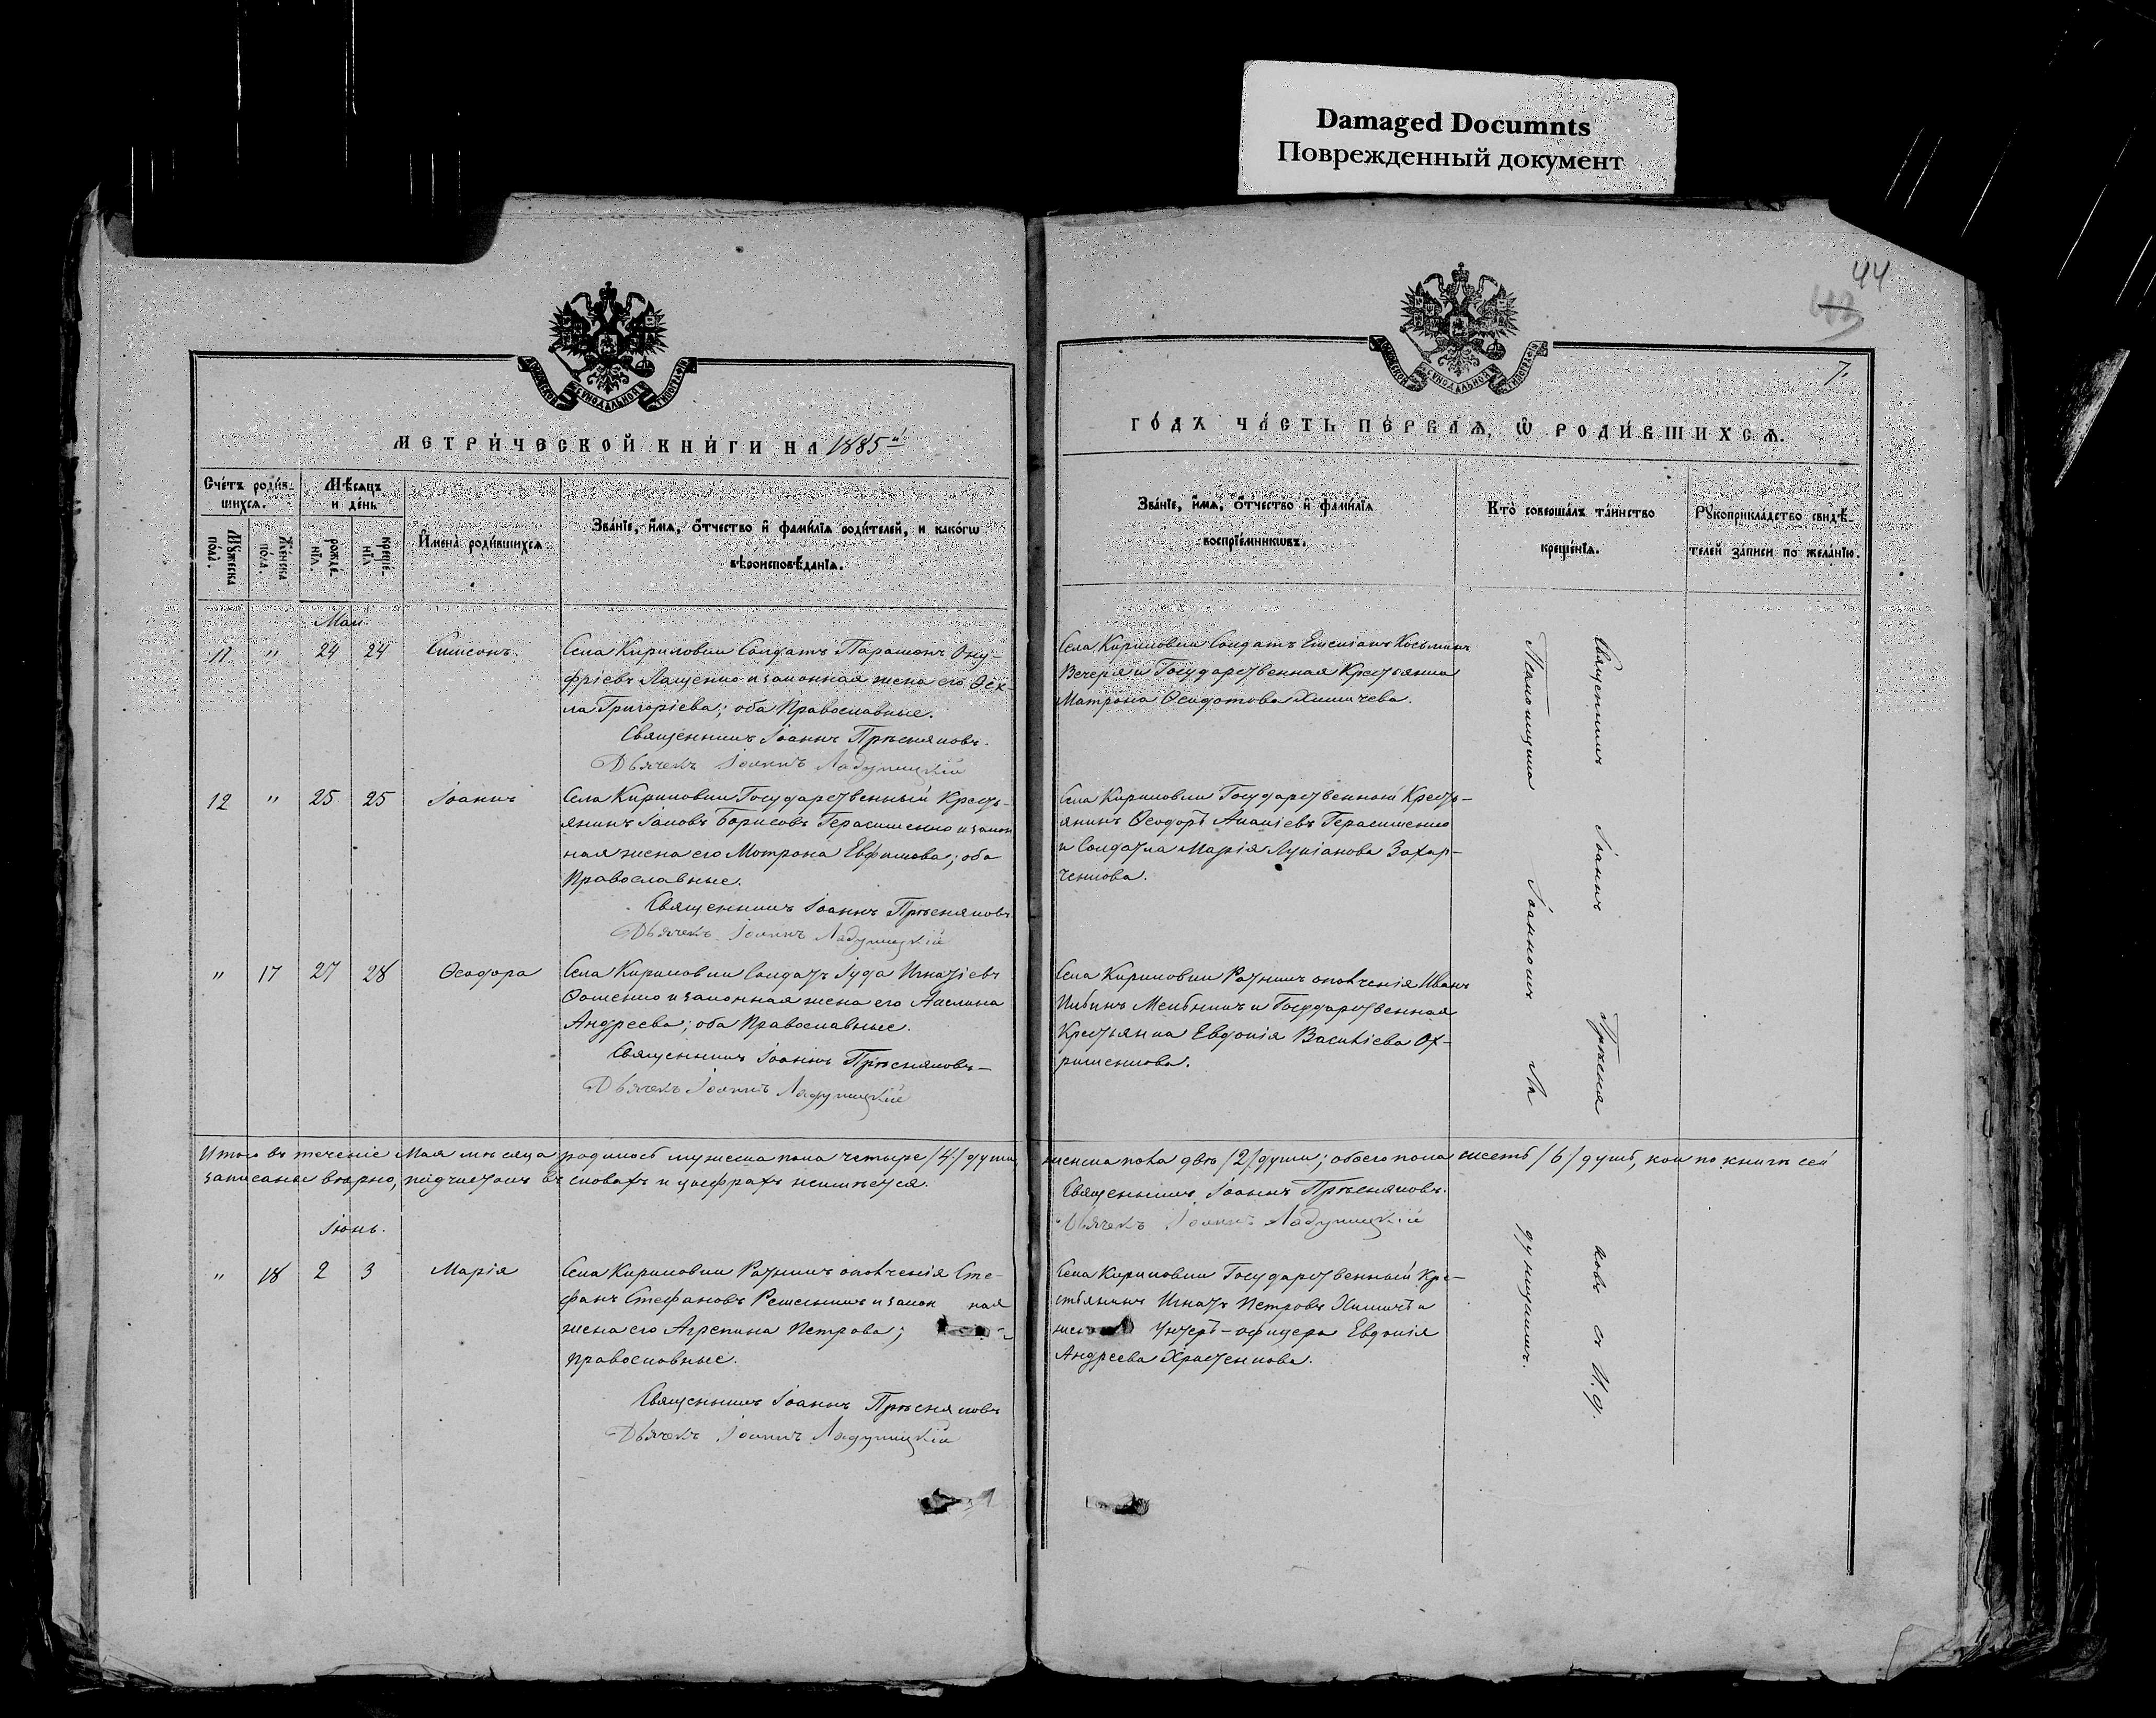 Damaged Documnts
Поврежденный документ
44
43
7.
МЕТРИ́ЧЕСКОЙ КНИ́ГИ НА 1885й
ГО́ДЪ ЧА́СТЬ ПЕ́РВАѦ, Ѿ РОДИ́ВШИХСѦ.
Сче́тъ роди́в-
шихсѧ.
Мꙋ́жеска по́ла.
Же́нска по́ла.
Мѣ́сѧцъ
и де́нь
рожде́-
нїѧ.
креще́-
нїѧ
И҆мена̀ роди́вшихсѧ.
Зва́нїе, и҆́мѧ, ѻ҆́тчество и҆ фами́лїѧ роди́телей, и како́гѡ
вѣроисповѣ́данїѧ.
Зва́нїе, и҆́мѧ, ѻ҆́тчество и҆ фами́лїѧ
воспрїе́мникѡвъ.
Кто̀ соверша́лъ та́инство
креще́нїѧ.
Рꙋкоприкла́дство свидѣ́-
телей за́писи по жела́нїю.
Май.
11. " 24 24 Симеонъ.
Села Кириловки Солдатъ Парамонъ Ону-
фріевъ Лащенко и законная жена его Ѳек-
ла Григоріева; оба Православные.
Священникъ Іоаннъ Прѣсняковъ.
Дьячекъ Іоаннъ Ладухицкій
Села Кириловки Солдатъ Емеліанъ Косьминъ
Вечеря и Государственная Крестьянка
Матрона Ѳеодотова Химичева.
12 " 25 25 Іоаннъ
Села Кириловки Государственный Кресть-
янинъ Іаковъ Борисовъ Герасименко и закон
ная жена его Мотрона Евфимова; оба
Православные.
Священникъ Іоаннъ Прѣсняковъ
Дьячекъ Іоаннъ
Села Кириловки Государственный Кресть-
янинъ Ѳеодоръ Ананіевъ Герасименко
и Солдатка Марія Лукіанова Захар-
ченкова.
" 17 27 28 Ѳеодора
Села Кириловки Солдатъ Іуда Игнатіевъ
Ѳоменко и законная жена его Акелина
Андреева; оба Православные.
Священникъ Іоаннъ Прѣсняковъ
Дьячекъ Іоаннъ
Села Кириловки Ратникъ ополченія Иванъ
Ильинъ Мельникъ и Государственная
Крестьянка Евдокія Василіева Ох-
рименкова.
Священникъ Іоаннъ Прѣсня ковъ съ И. д.
Псаломщика Іоанномъ
Итого въ теченіе Мая мѣсяца родилось мужеска пола четыре /4/ души, женска пола двѣ /2/ души; обоего пола шесть /6/ душъ, кои по книгѣ сей
записаны вѣрно, подчистокъ въ словахъ и цыфрахъ неимѣется.
Священникъ Іоаннъ Прѣсняковъ.
Дьячекъ Іоаннъ
Іюнь.
" 18 2 3 Марія
Села Кириловки Ратникъ ополченія Сте-
фанъ Стефановъ Решетникъ и закон ная
жена его Агрепина Петрова;
православные.
Священникъ Іоаннъ Прѣсняковъ
Дьячекъ Іоаннъ
Села Кириловки Государственный Кре-
стьянинъ Игнатъ Петровъ Химичъ и
Унтеръ-офицера Евдокія
Андреева Христенкова.